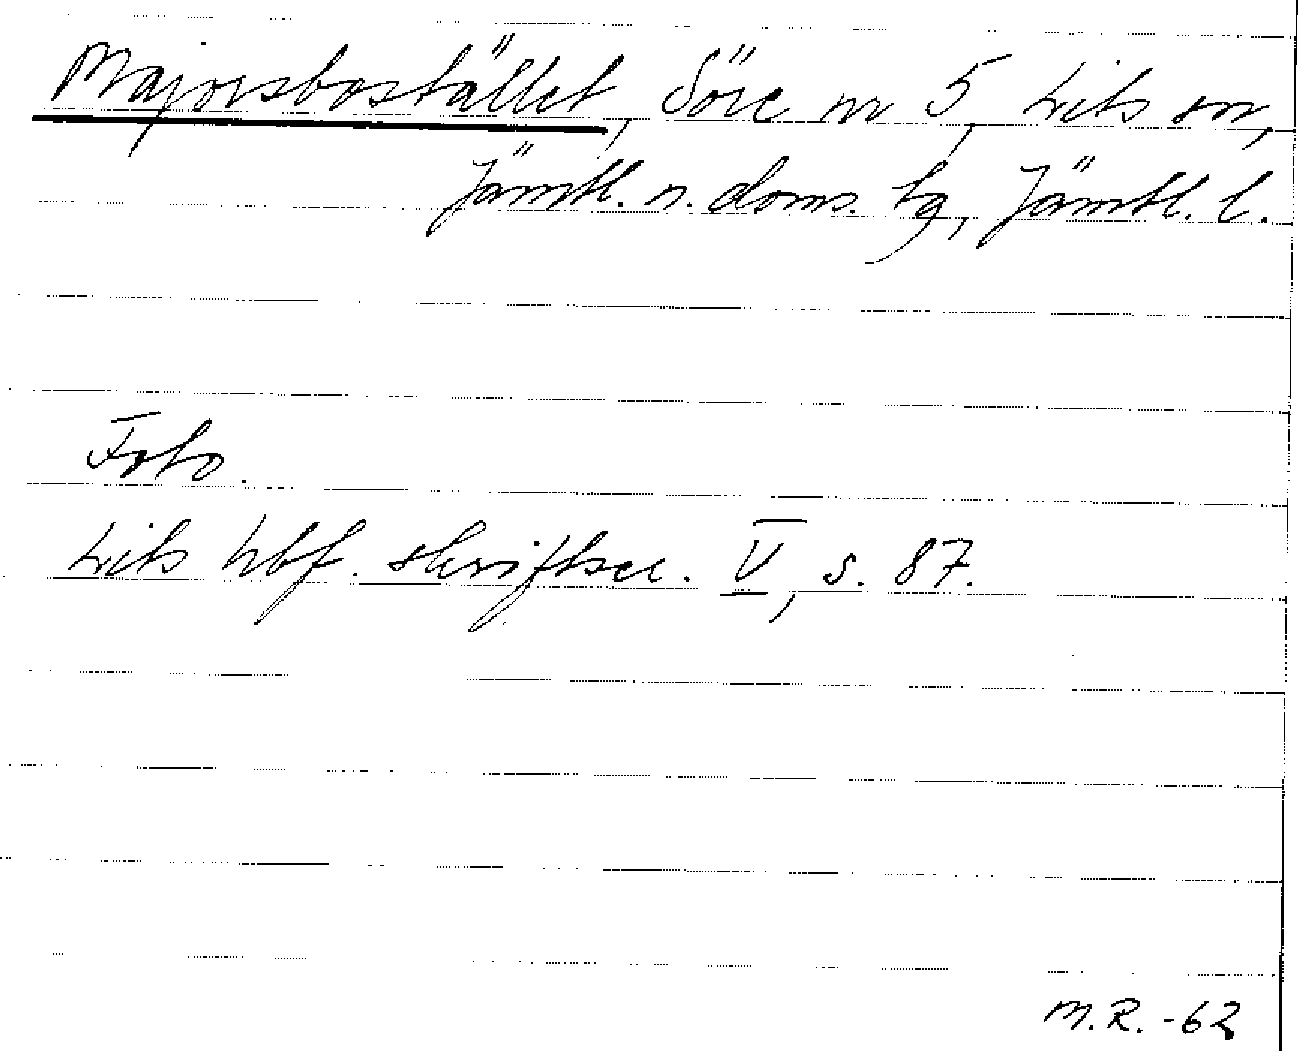 Majorsbostället, Söre nr 5, Lits sn,
Jämtl. n. doms. tg, Jämtl. l.
Foto.
Lits hbf. skriftser. V, s. 87.
M.R. -62